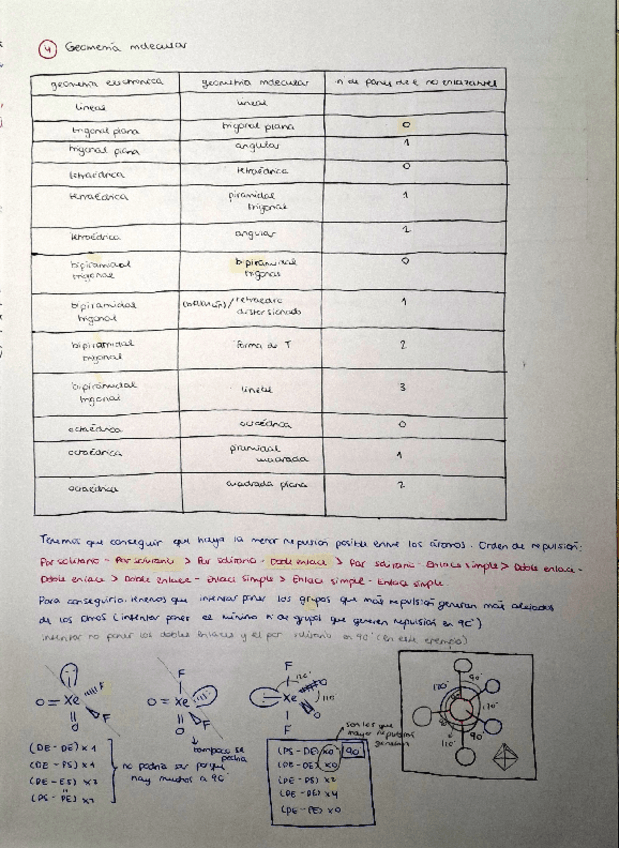 4 Geometría molecular
geometría electrónica geometría molecular nº de pares de e no enlazantes
lineal lineal
trigonal plana trigonal plana 0
trigonal plana angular 1
tetraédrica tetraédrica 0
tetraédrica piramidal
trigonal 1
tetraédrica angular 2
bipiramidal
trigonal bipiramidal
trigonal 0
bipiramidal
trigonal tetraedro
distorsionado 1
bipiramidal
trigonal forma de T 2
bipiramidal
trigonal lineal 3
octaédrica octaédrica 0
octaédrica piramidal
cuadrada 1
octaédrica cuadrada plana 2
Tenemos que conseguir que haya la menor repulsión posible entre los átomos. Orden de repulsión:
Par solitario - Par solitario > Par solitario - Doble enlace > Par solitario - Enlace simple > Doble enlace -
Doble enlace > Doble enlace - Enlace simple > Enlace simple - Enlace simple
Para conseguirlo tenemos que intentar poner los grupos que más repulsión generan más alejados
de los otros (intentar poner el mínimo nº de grupos que generen repulsión en 90°)
intentar no poner los dobles enlaces y el par solitario en 90° (en este ejemplo)
O = Xe F F O
F O = Xe F O
F Xe O O F 120° 110
(DE-DE) x 1
(DE-PS) x 1
(DE-ES) x 3
no podría ser porque
hay muchos a 90°
tampoco se
podría
son los que
mayor repulsión
generan
(PS-DE) x0 90
(DE-DE) x0
x2
x4
x0
120° 90° 120° 90° 110°